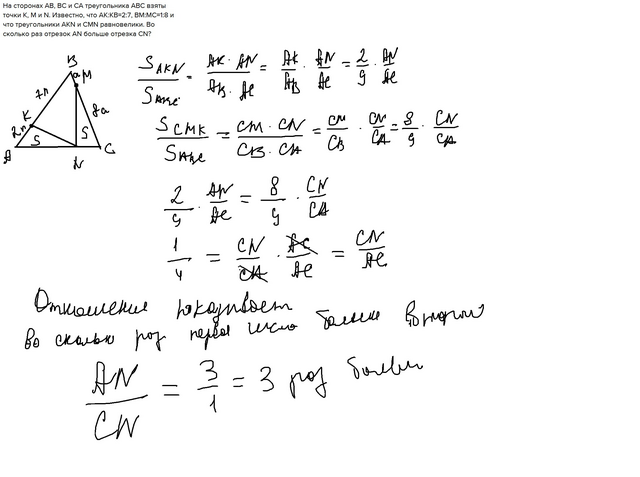 На сторонах AB, BC и CA треугольника ABC взяты
точки K, M и N. Известно, что AK:KB=2:7, BM:MC=1:8 и
что треугольники AKN и CMN равновелики. Во
сколько раз отрезок AN больше отрезка CN?
B
a M
7n
8a
K
2n
S S
A N C
S_AKN / S_ABC = AK · AN / AB · AC = AK/AB · AN/AC = 2/9 · AN/AC
S_CMK / S_ABC = CM · CN / CB · CA = CM/CB · CN/CA = 8/9 · CN/CA
2/9 · AN/AC = 8/9 · CN/CA
1/4 = CN/CA · AC/AC = CN/AC
Отношение показывает
во сколько раз первое число больше второго
AN/CN = 3/1 = 3 раз больше